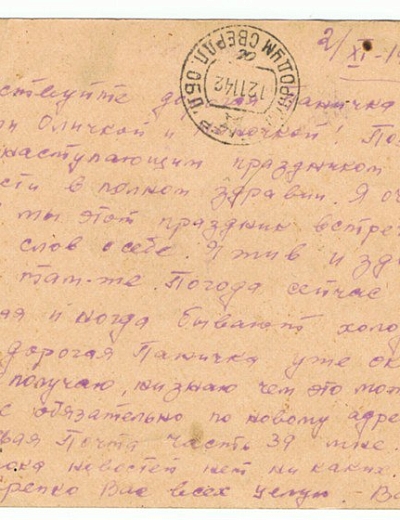 2/XI-19
ГОРЬК ДУМ СВЕРДЛ. ОБЛ.
12 11 42
ствуйте до ая аничка
и Оличкой и ночкой! По
наступающим праздником
сти в полном здравии. Я оч
мы этот праздник встреч
слов о себе. Я жив и зд
там-же. Погода сейчас
ая иногда бывают холо
дорогая Паничка уже ок
получаю, низнаю чем это мож
с обязательно по новому адре
вая Почта часть 39 мне.
пока новостей нет ни каких.
репко Вас всех целую. - Ва